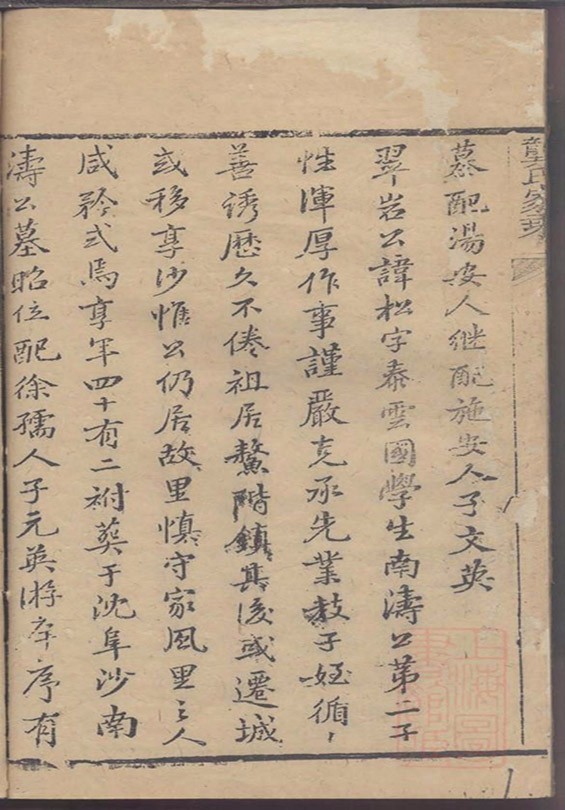 龔氏家乘
墓配湯安人继配施安人子文英
翠岩公諱松字泰雲國學生南濤公第二子
性渾厚作事謹嚴克承先業教子姪循〻
善誘歷久不倦祖居鰲階鎮其後或遷城
或移享沙惟公仍居故里慎守家風里之人
咸矜式焉享年四十有二祔葬于沈阜沙南
濤公墓昭位配徐孺人子元英游庠序有
上海圖